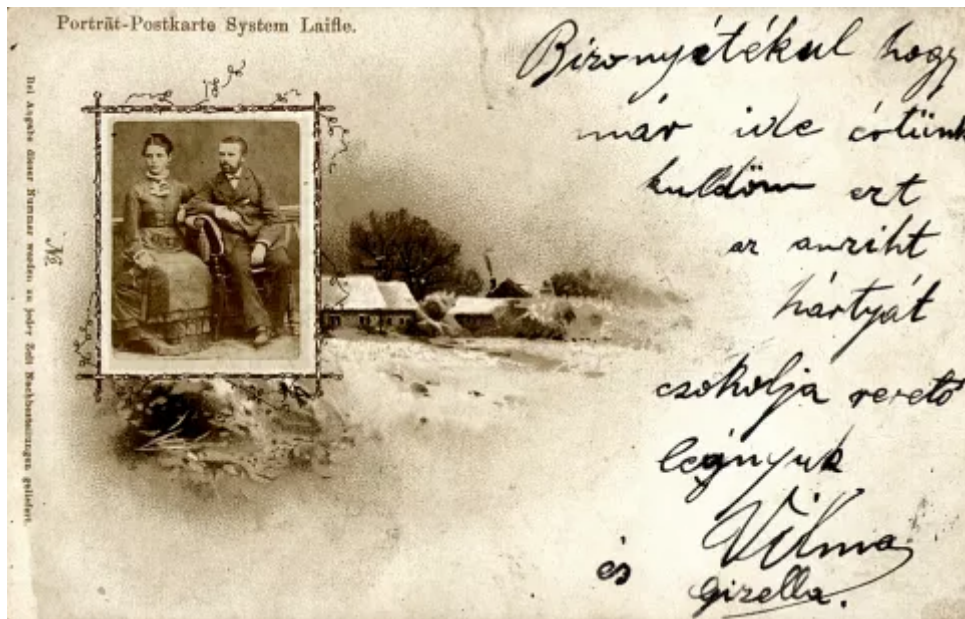 Porträt-Postkarte System Laifle.
Bei Angabe dieser Nummer werden zu jeder Zeit Nachbestellungen geliefert.
No
Bizonyétékul hogy
már ide értünk
kuldöm ezt
az anziht
kártyát
czokolja verető
legényuk
Vilma
és
Gizella.